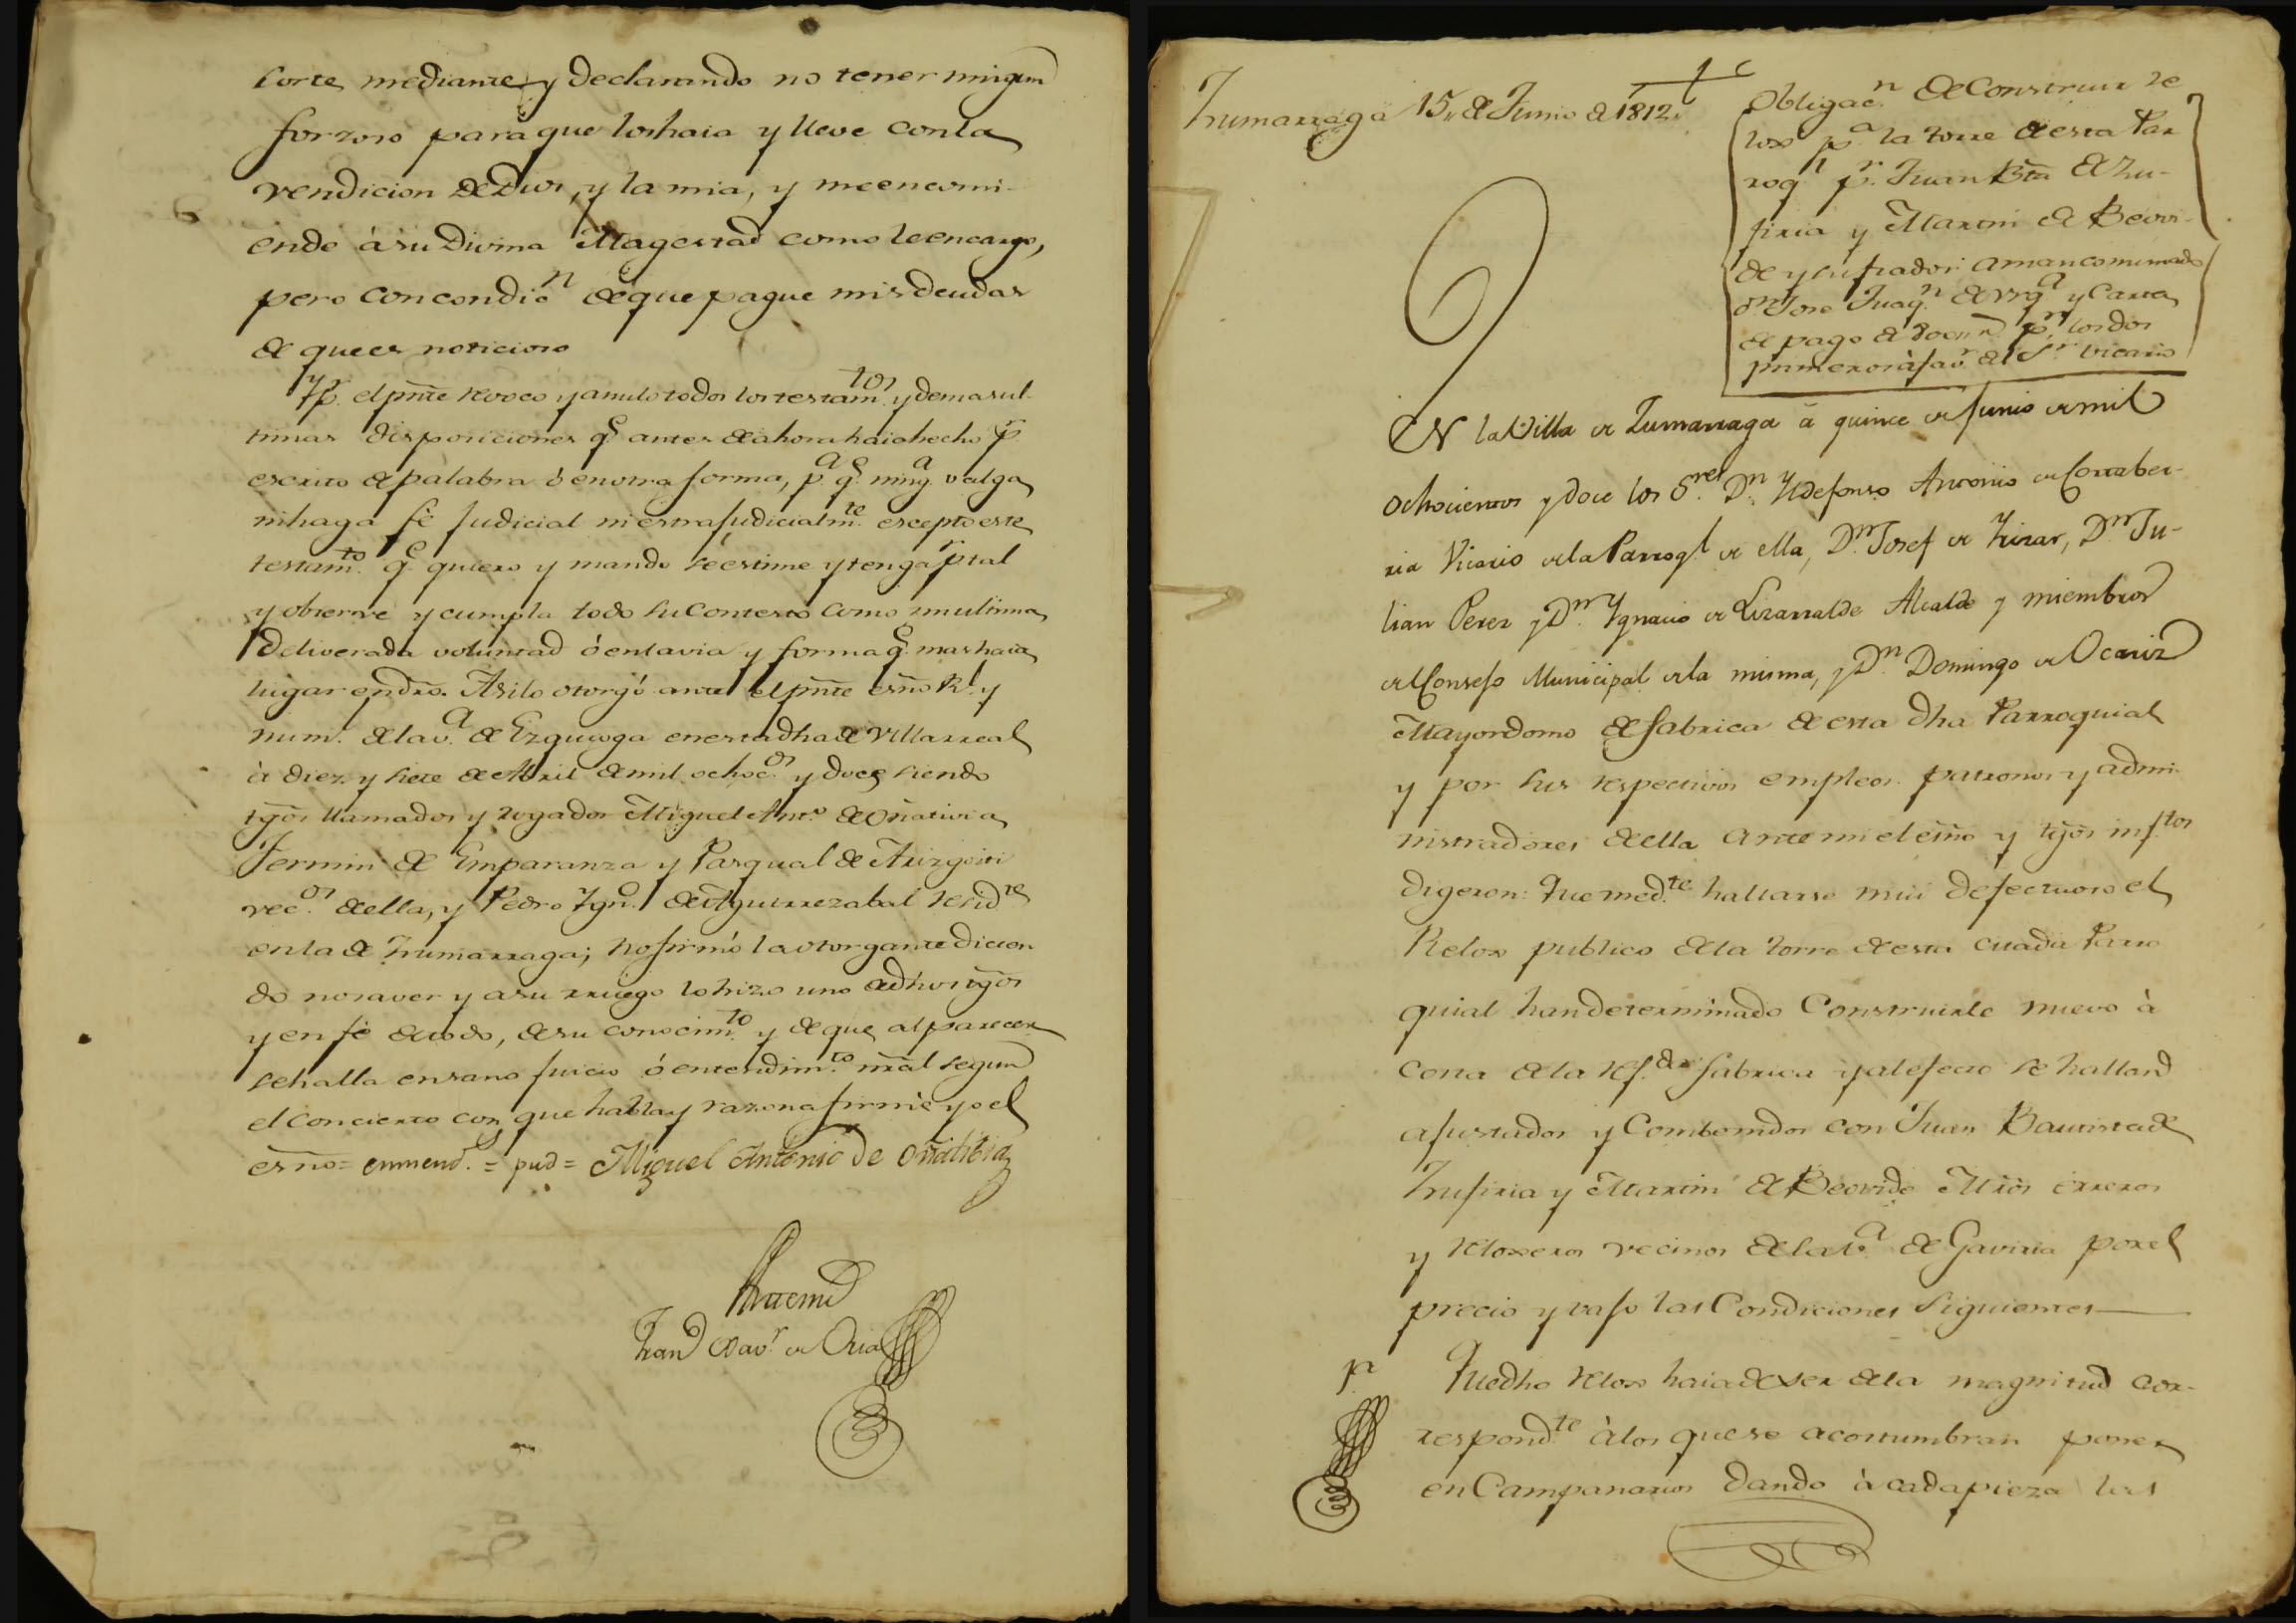 corte mediante y declarando no tener ningun
forzoso para que los haia y lleve con la
vendicion de Dios, y la mia, y me encomi-
ende à su Divina Magestad como le encargo,
pero con condicⁿ de que pague mis deudas
de que es noticioso
Y pʳ el pñte revoco y anulo todos los testamᵗᵒˢ y demas ul-
timas disposiciones qᵉ antes de ahora haia hecho pʳ
escrito de palabra ó en otra forma, pᵃ qᵉ ningᵃ valga
ni haga fè judicial ni estrajudicialmᵗᵉ escepto este
testamᵗᵒ qᵉ quiero y mando se estime y tenga pʳ tal
y observe y cumpla todo su Contesto como mi ultima
deliverada voluntad ó en la via y forma qᵉ mas haia
lugar en dro. Asi lo otorgó ante el pñte esño Rˡ y
num. de la vᵃ de Ezquioga en esta dha de Villarreal
à diez y siete de Abril de mil ochocᵒˢ y doce siendo
tgõs llamados y rogados Miguel Antº de Oñativia
Fermin de Emparanza y Pasqual de Arizgoiti
vecᵒˢ de ella, y Pedro Ignº de Aguirrezabal residᵗᵉ
en la de Zumarraga; no firmó la otorgante dicien
do no saver y a su rruego lo hizo uno de dhos tgõs
y en fè de todo, de su conocimᵗᵒ y de que al parecer
se halla en sano juicio ó entendimᵗᵒ nral segun
el concierto con que habla y razona firmè yo el
esño = enmendº = pud = Miguel Antonio de Oñatibia
Ante mi
Franᶜᵒ Xavʳ de Oria
Zumarraga 15 de Junio de 1812
Obligacⁿ de Construir re
lox pᵃ la torre de esta Par
roqˡ pʳ Juan Bta de Zu-
firia y Martin de Beovi-
de y su fiador amancomunado
dⁿ Jose Juaqⁿ de y Carta
de pago de pʳ los dos
primeros à favʳ del Sʳ Vicario
EN la Villa de Zumarraga à quince de Junio de mil
ochocientos y doce los Sʳᵉˢ Dⁿ Yldefonso Antonio de Cortaber-
ria Vicario de la Parroqˡ de ella, Dⁿ Josef de Yrizar, Dⁿ Ju-
lian Perez y Dⁿ Ygnacio de Lizarralde Alcalde y miembros
del Consejo Municipal de la misma, y Dⁿ Domingo de Ocariz
Mayordomo de fabrica de esta dha Parroquial
y por sus respectivos empleos patronos y admi-
nistradores de ella ante mi el esño y tgõs infᵗᵒˢ
digeron: Que medᵗᵉ hallarse mui defectuoso el
Relox publico de la torre de esta citada Parro
quial han determinado Construirle nuevo à
costa de la refᵈᵃ fabrica y al efecto se hallan
ajustados y Combenidos con Juan Bautista de
Zufiria y Martin de Beovide Mrõs erreros
y reloxeros vecinos de la vᵃ de Gaviria por el
precio y vajo las Condiciones siguientes
1ª Que dho relox haia de ser de la magnitud cor-
respondᵗᵉ à los que se acostumbran poner
en Campanarios dando à cada pieza las